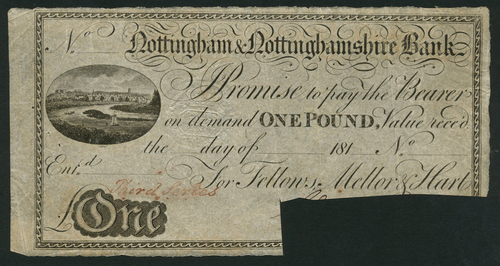 No Nottingham & Nottinghamshire Bank
I Promise to pay the Bearer
on demand ONE POUND, Value rece'd
the day of 181 No
Ent.d For Fellows, Mellor & Hart
Third Series
£ One